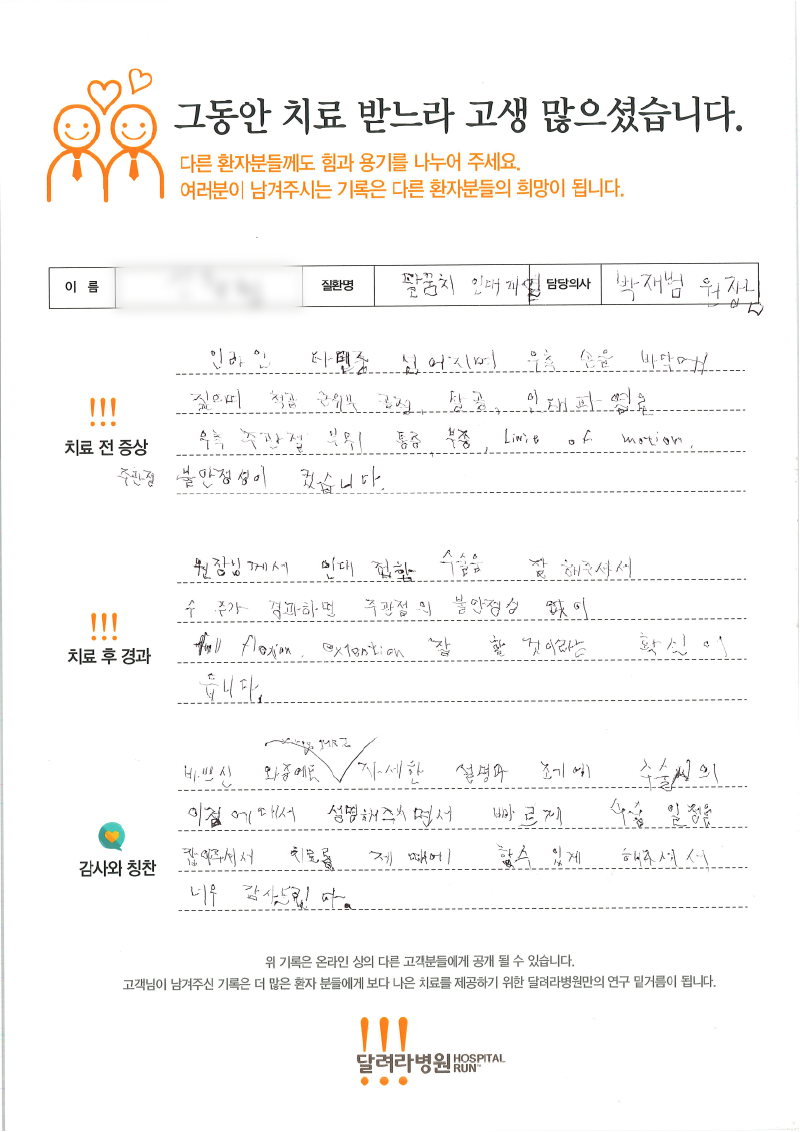 그동안 치료 받느라 고생 많으셨습니다.
다른 환자분들께도 힘과 용기를 나누어 주세요.
여러분이 남겨주시는 기록은 다른 환자분들의 희망이 됩니다.
이 름 질환명 팔꿈치 인대 담당의사 박재범 원장님
인라인 타던중 넘어지며 우측 손을 바닥에
짚으며 척골 근위부 골절, 탈골, 인대파열로
치료 전 증상
우측 주관절 부위 통증, 부종, Limit of motion,
주관절 불안정성이 컸습니다.
원장님께서 인대 접합 수술을 잘 해주셔서
수 주가 경과하면 주관절의 불안정성 없이
치료 후 경과
full flexion, extention 잘 할 것이라는 확신이
듭니다.
바쁘신 와중에도 자세한 설명과 조기에 수술의
이점에 대해서 설명해주시면서 빠르게 수술 일정을
감사와 칭찬
잡아주셔서 치료를 제 때에 할수 있게 해주셔서
너무 감사드립니다.
위 기록은 온라인 상의 다른 고객분들에게 공개 될 수 있습니다.
고객님이 남겨주신 기록은 더 많은 환자 분들에게 보다 나은 치료를 제공하기 위한 달려라병원만의 연구 밑거름이 됩니다.
달려라병원 HOSPITAL RUN™